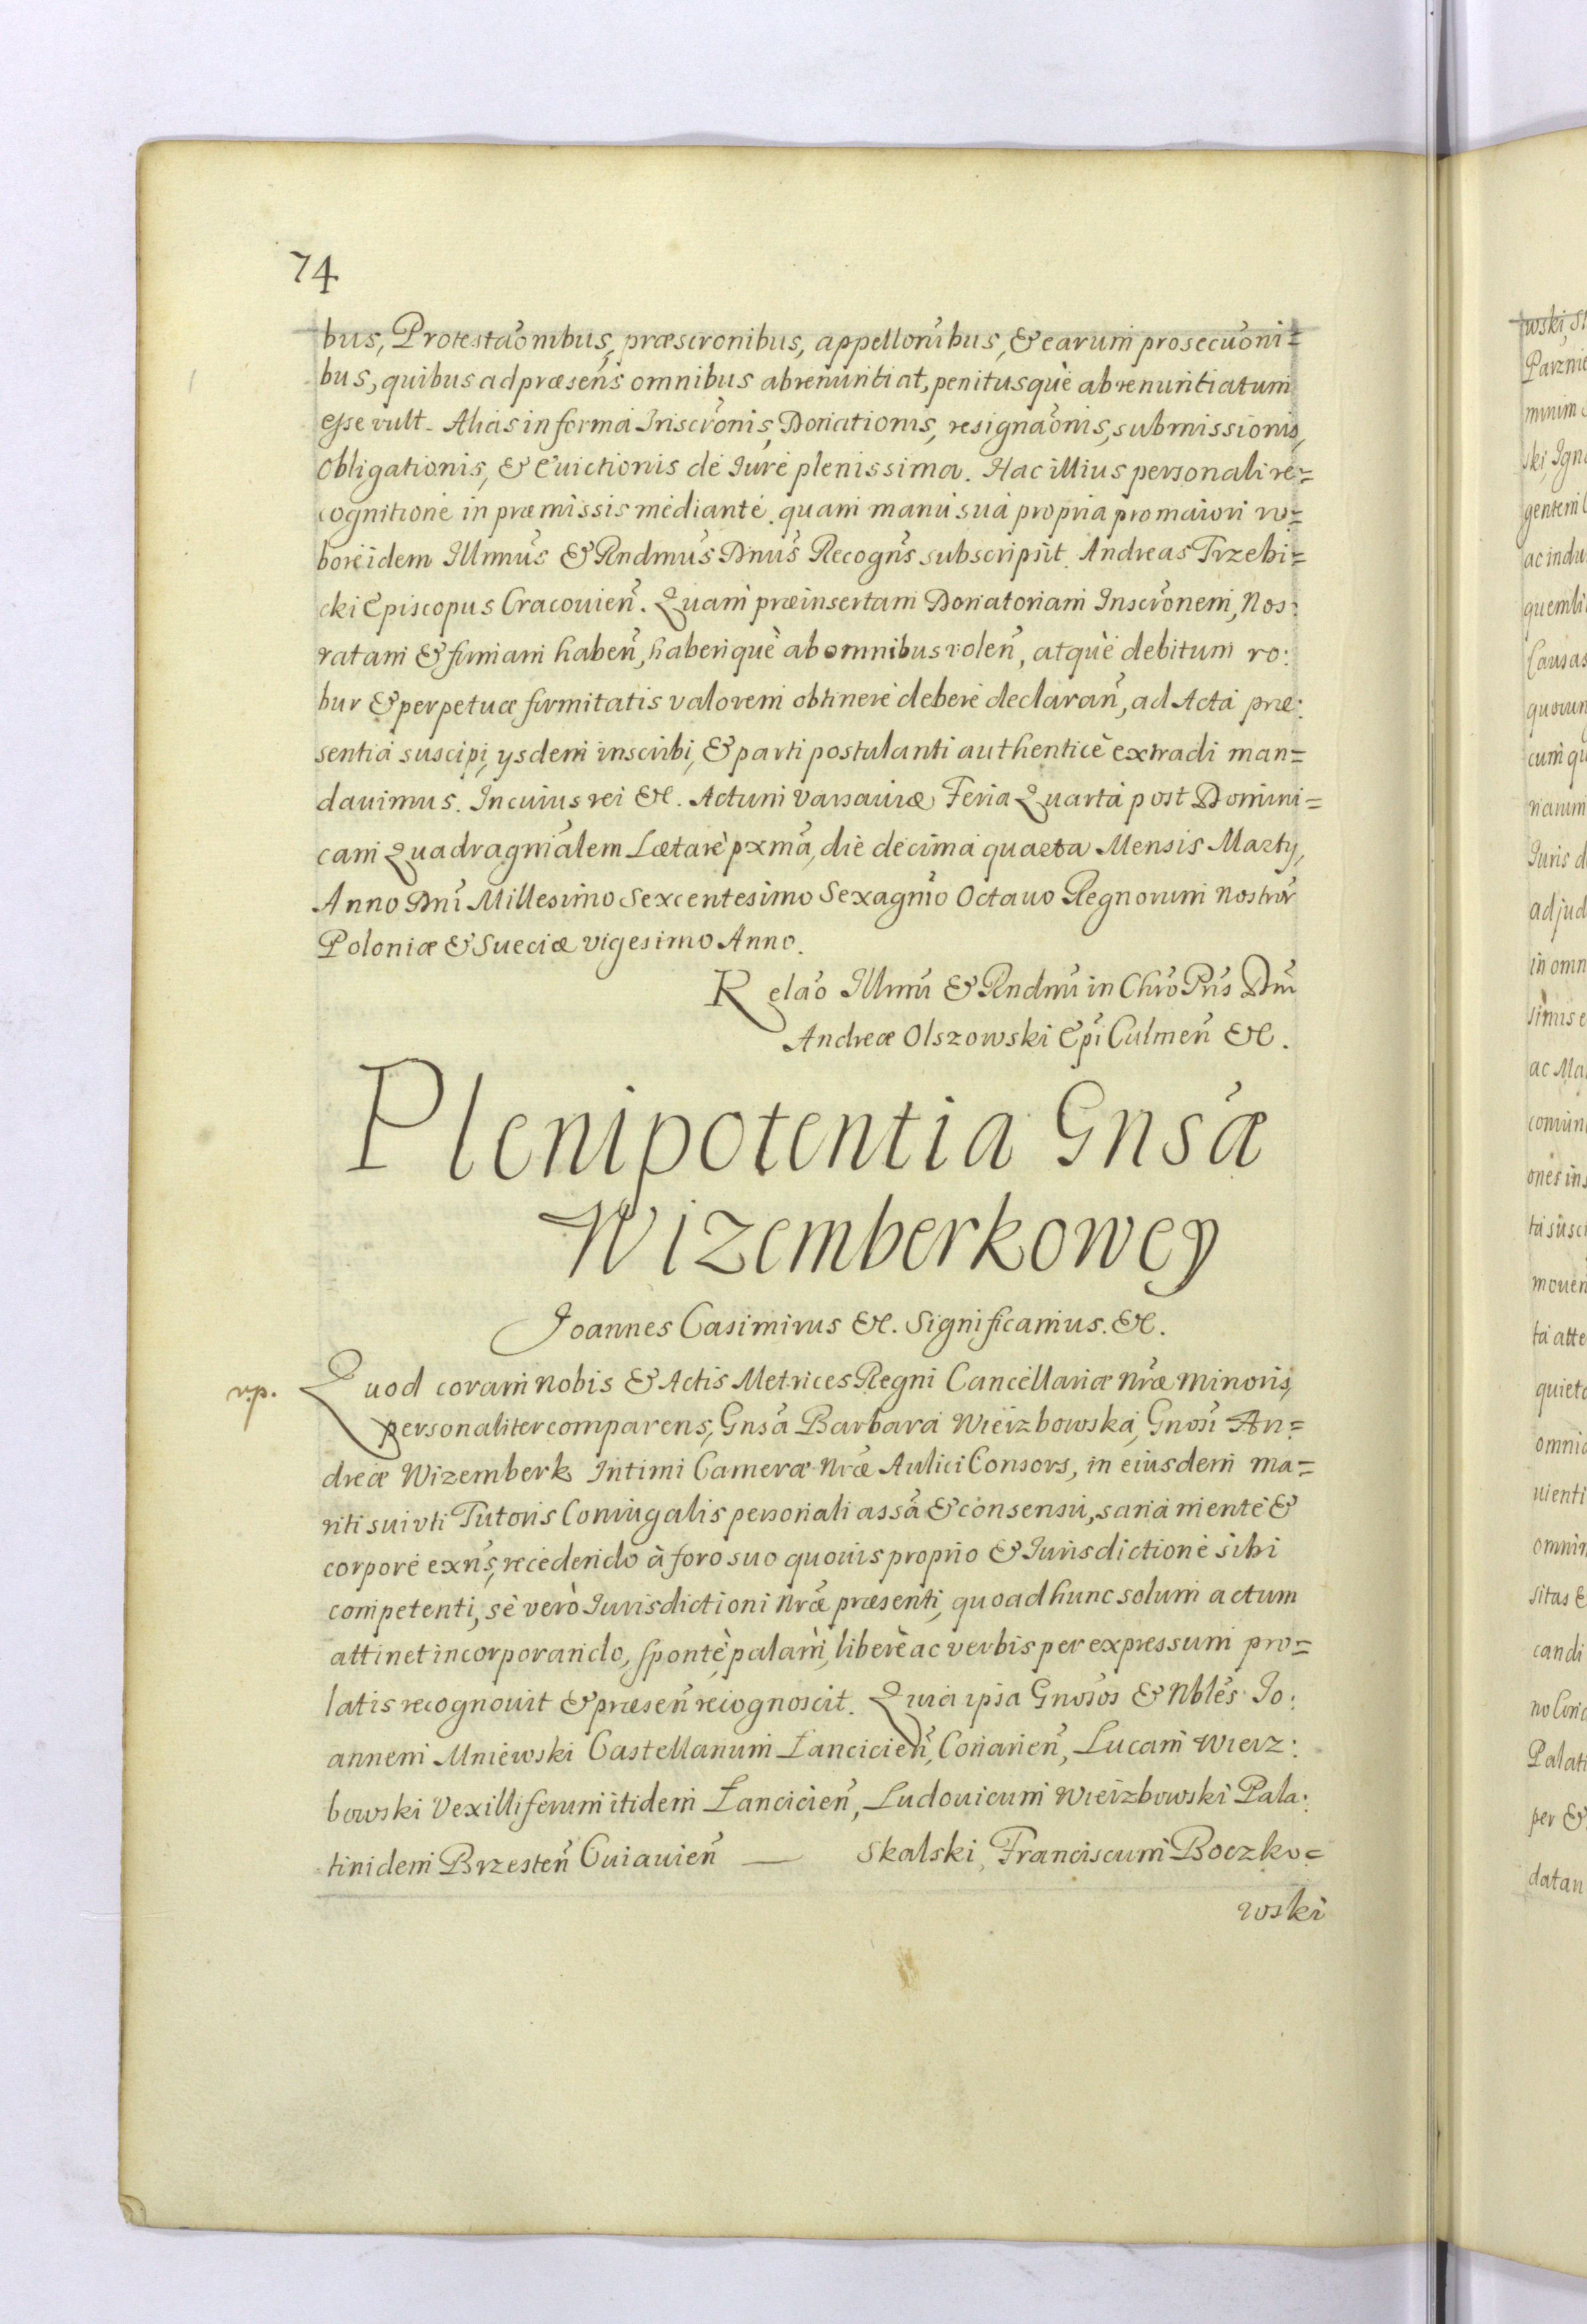 74
bus, Protestaõnibus, præscronibus, appellonibus, & earum prosecuoni=
bus, quibus ad præsens omnibus abrenuntiat, penitusquè abrenuntiatum
esse vult. Alias in forma Inscronis, Donationis, resignaõnis, submissionis,
Obligationis, & Euictionis de Iure plenissima. Hac illius personali re=
cognitione in præmissis mediante. quam manu sua propria pro maiori ro=
bore idem Illmus & Rndmus Dnus Recogns subscripsit. Andreas Trzebi=
cki Episcopus Cracouien. Quam præinsertam Donatoriam Inscronem, Nos:
ratam & firmam haben, haberiquè ab omnibus volen, atquè debitum ro:
bur & perpetuæ firmitatis valorem obtinere debere declaran, ad Acta præ:
sentia suscipi, ysdem inscribi, & parti postulanti authenticè extradi man=
dauimus. In cuius rei &c. Actum Varsauiæ Feria Quarta post Domini=
cam Quadragnialem Lætarè pxma, die decima quarta Mensis Marty,
Anno Dni Millesimo Sexcentesimo Sexagnio Octauo Regnorum nostror
Poloniæ & Sueciæ vigesimo Anno.
Relao Illmi & Rndmi in Chro Pris Dni
Andreæ Olszowski Epi Culmen &c.
Plenipotentia Gnsæ
Wizemberkowey
Joannes Casimirus &c. Significamus. &c.
rp.
Quod coram nobis & Actis Metrices Regni Cancellariæ nræ minoris,
personaliter comparens, Gnsa Barbara Wieizbowska, Gnosi An=
dreæ Wizemberk Intimi Cameræ Nræ Aulici Consors, in eiusdem ma=
riti sui vti Tutoris Coniugalis personali assa & consensu, sana mente &
corpore exns, recedendo à foro suo quouis proprio & Iurisdictione sibi
competenti, sè verò Iurisdictioni Nræ præsenti, quoad hunc solum actum
attinet incorporando, spontè, palàm, liberè ac verbis per expressum pro=
latis recognouit & præsen recognoscit. Quia ipsa Gnosos & Nbles Jo:
annem Mniewski Castellanum Łancicień, Conarien, Lucam Wierz:
bowski Vexilliferum itidem Łancicien, Ludouicum Wieizbowski Pala:
tinidem Brzesten Cuiauien — Skalski, Franciscum Boczko=
wski